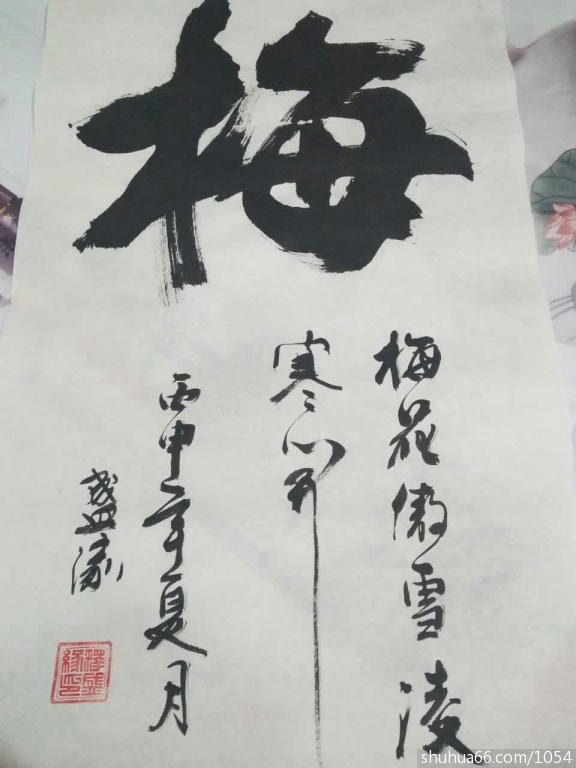 梅
梅花傲雪凌
寒心开
丙申年夏月
盛缘
释盛缘印
shuhua66.com/1054